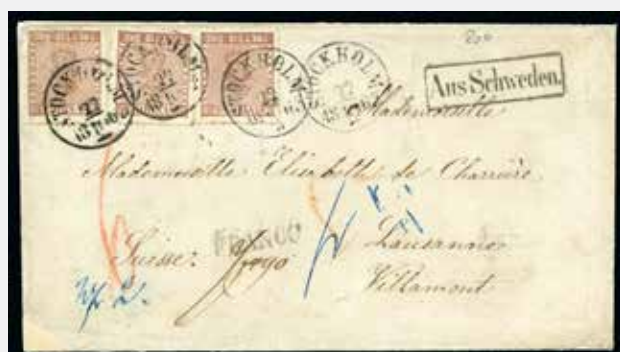 STOCKHOLM
22
STOCKHOLM
22
STOCKHOLM
22
STOCKHOLM
22
Aus Schweden.
Mademoiselle
Mademoiselle Elisabeth de Charrière
FRANCO
Suisse.
Lausanne
Villamont